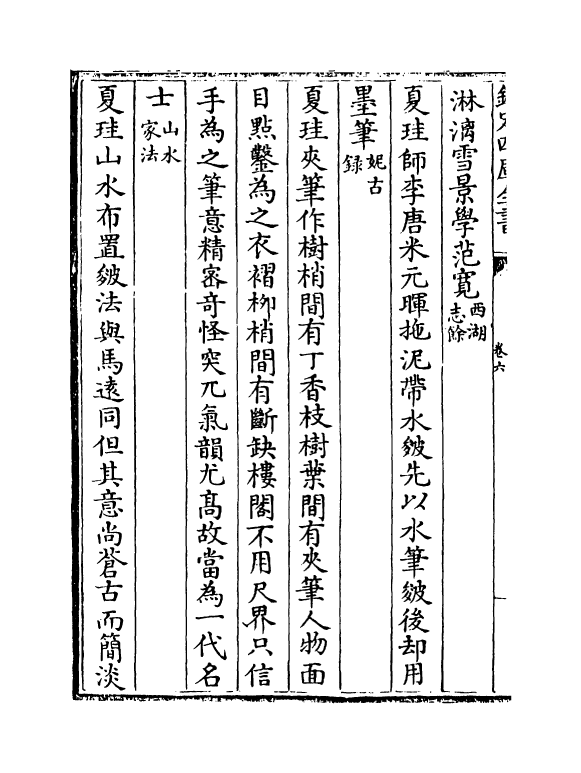 欽定四庫全書
卷六
淋漓雪景學范寛西湖志餘
夏珪師李唐米元暉拖泥帶水皴先以水筆皴後却用
墨筆妮古録
夏珪夾筆作樹梢間有丁香枝樹葉間有夾筆人物面
目點鑿為之衣褶柳梢間有斷缺樓閣不用尺界只信
手為之筆意精宻竒怪突兀氣韻尤髙故當為一代名
士山水家法
夏珪山水布置皴法與馬逺同但其意尚蒼古而簡淡